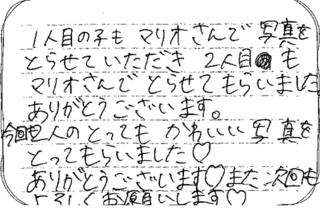 1人目の子も マリオさんで 写真を
とらせていただき 2人目も
マリオさんで とらせてもらいました
ありがとうございます。
今回2人の とっても かわいい 写真を
とってもらいました♡
ありがとうございます♡また 次回も
よろしくお願いします♡